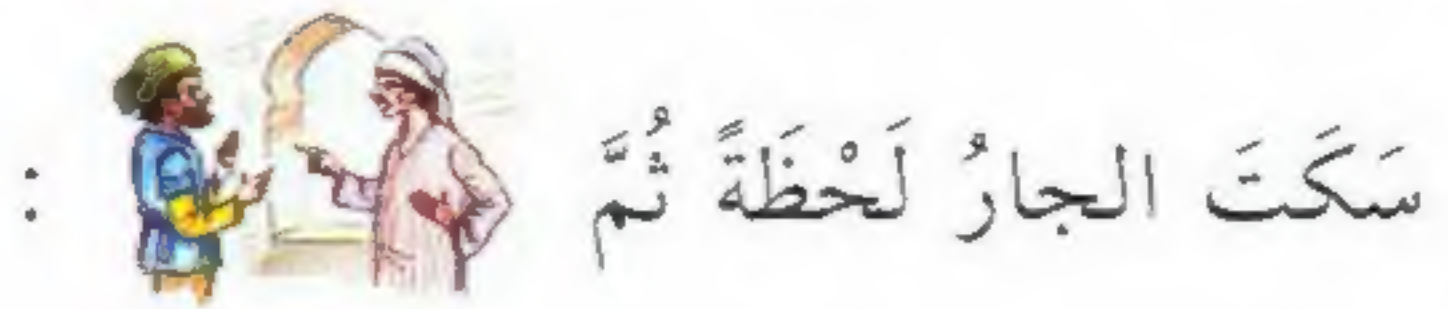 سَكَتَ الجارُ لَحْظَةً ثُمَّ :